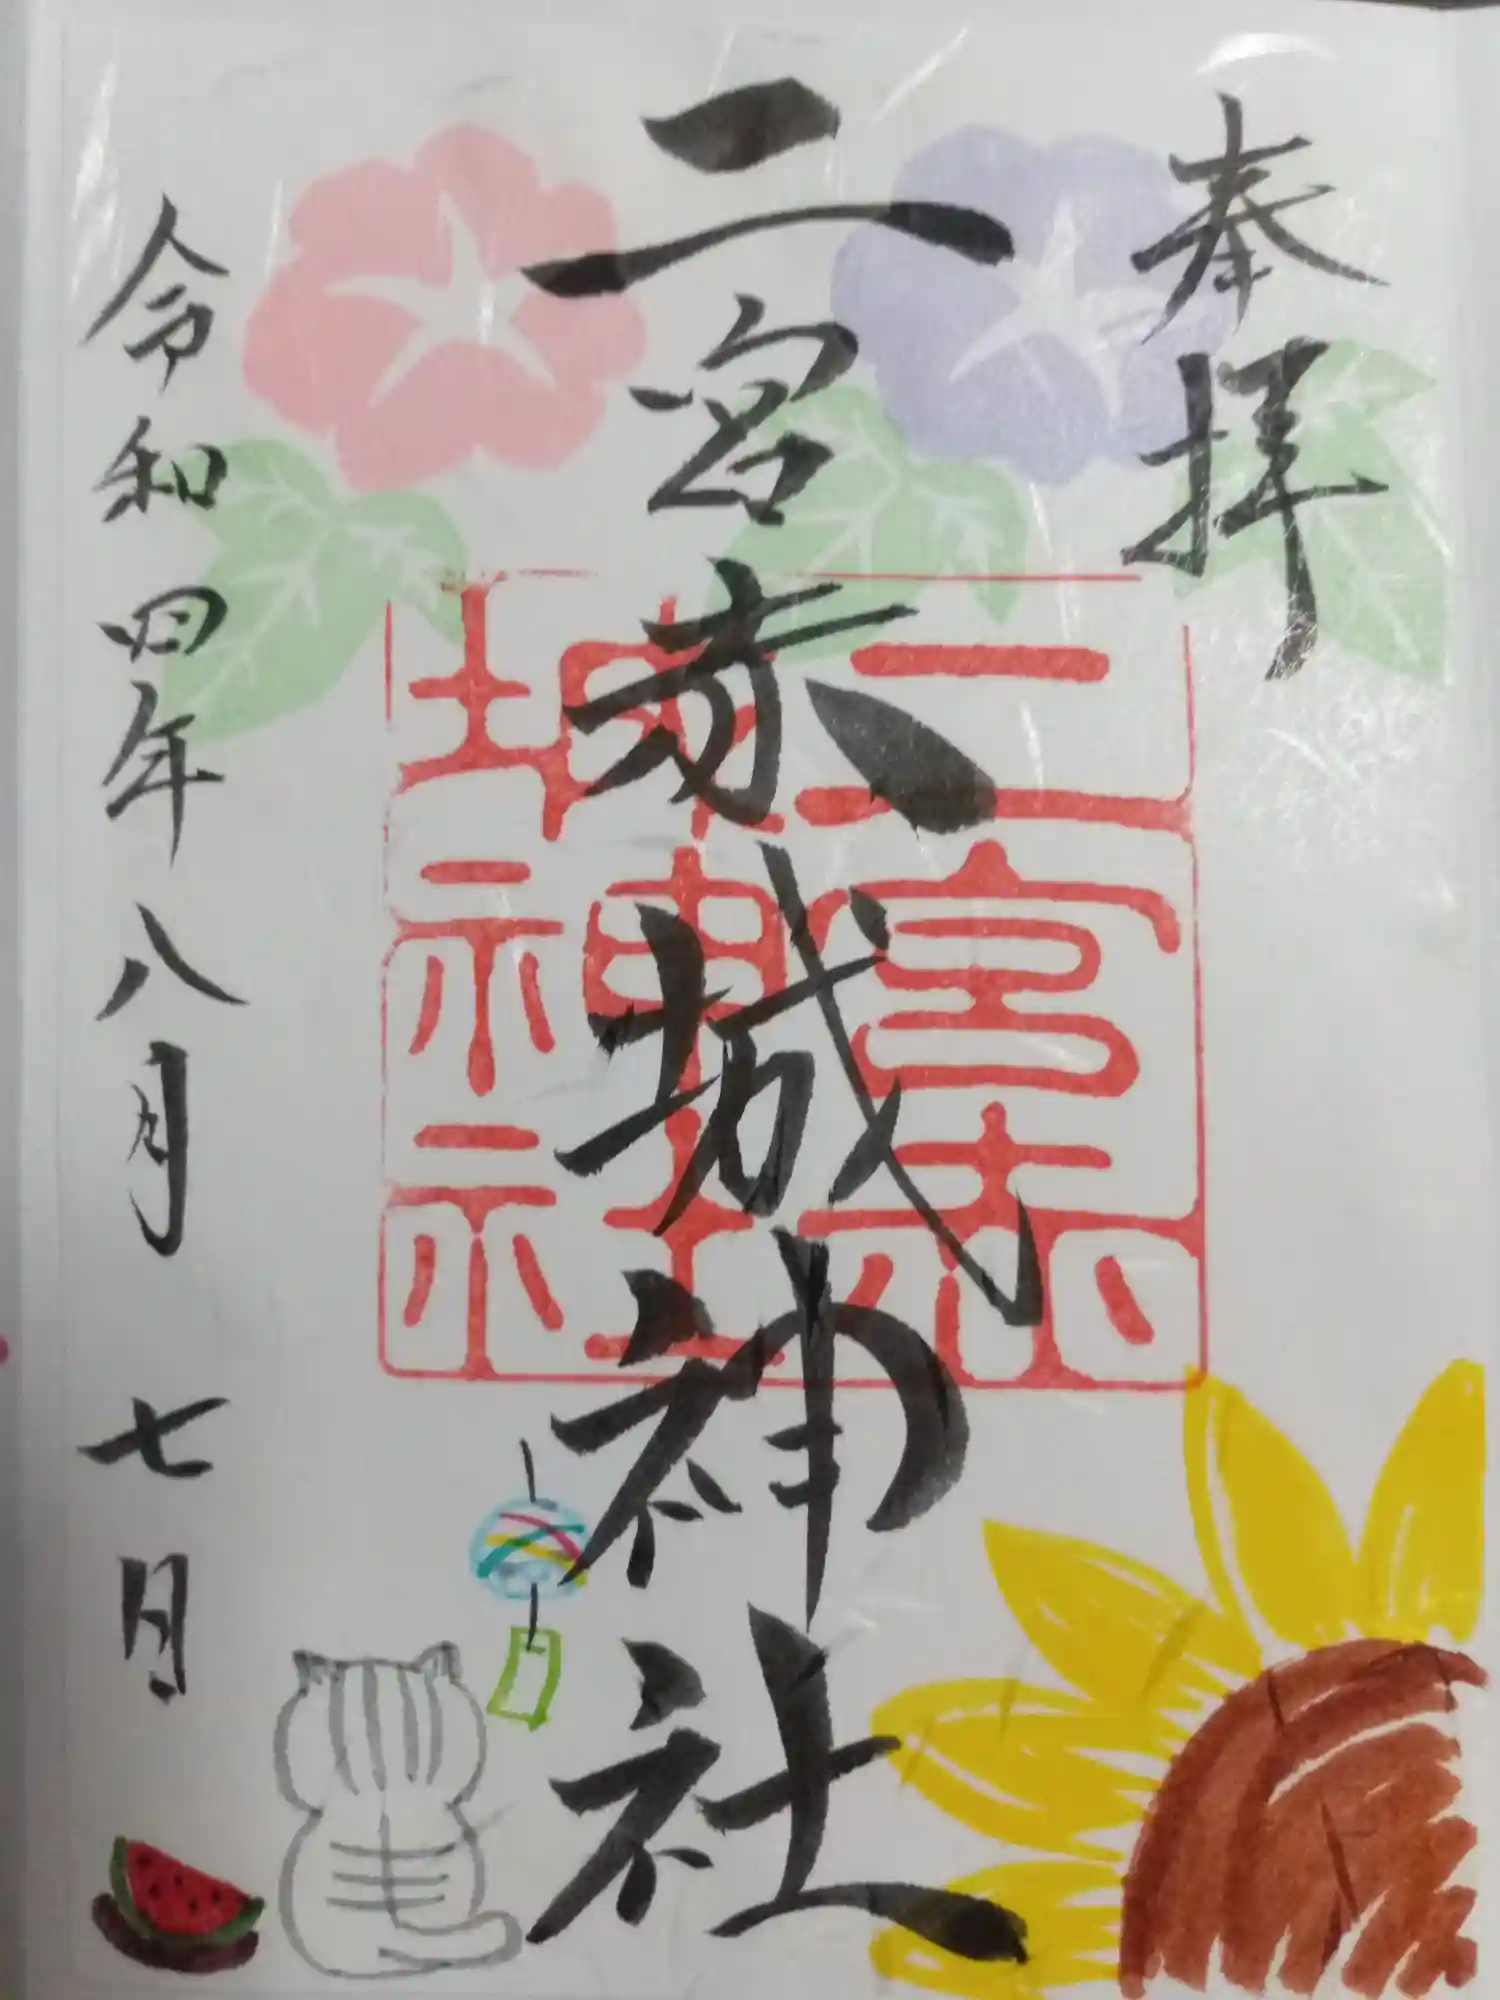 奉拝
二宮赤城神社
令和四年八月七日
二宮赤
城神社